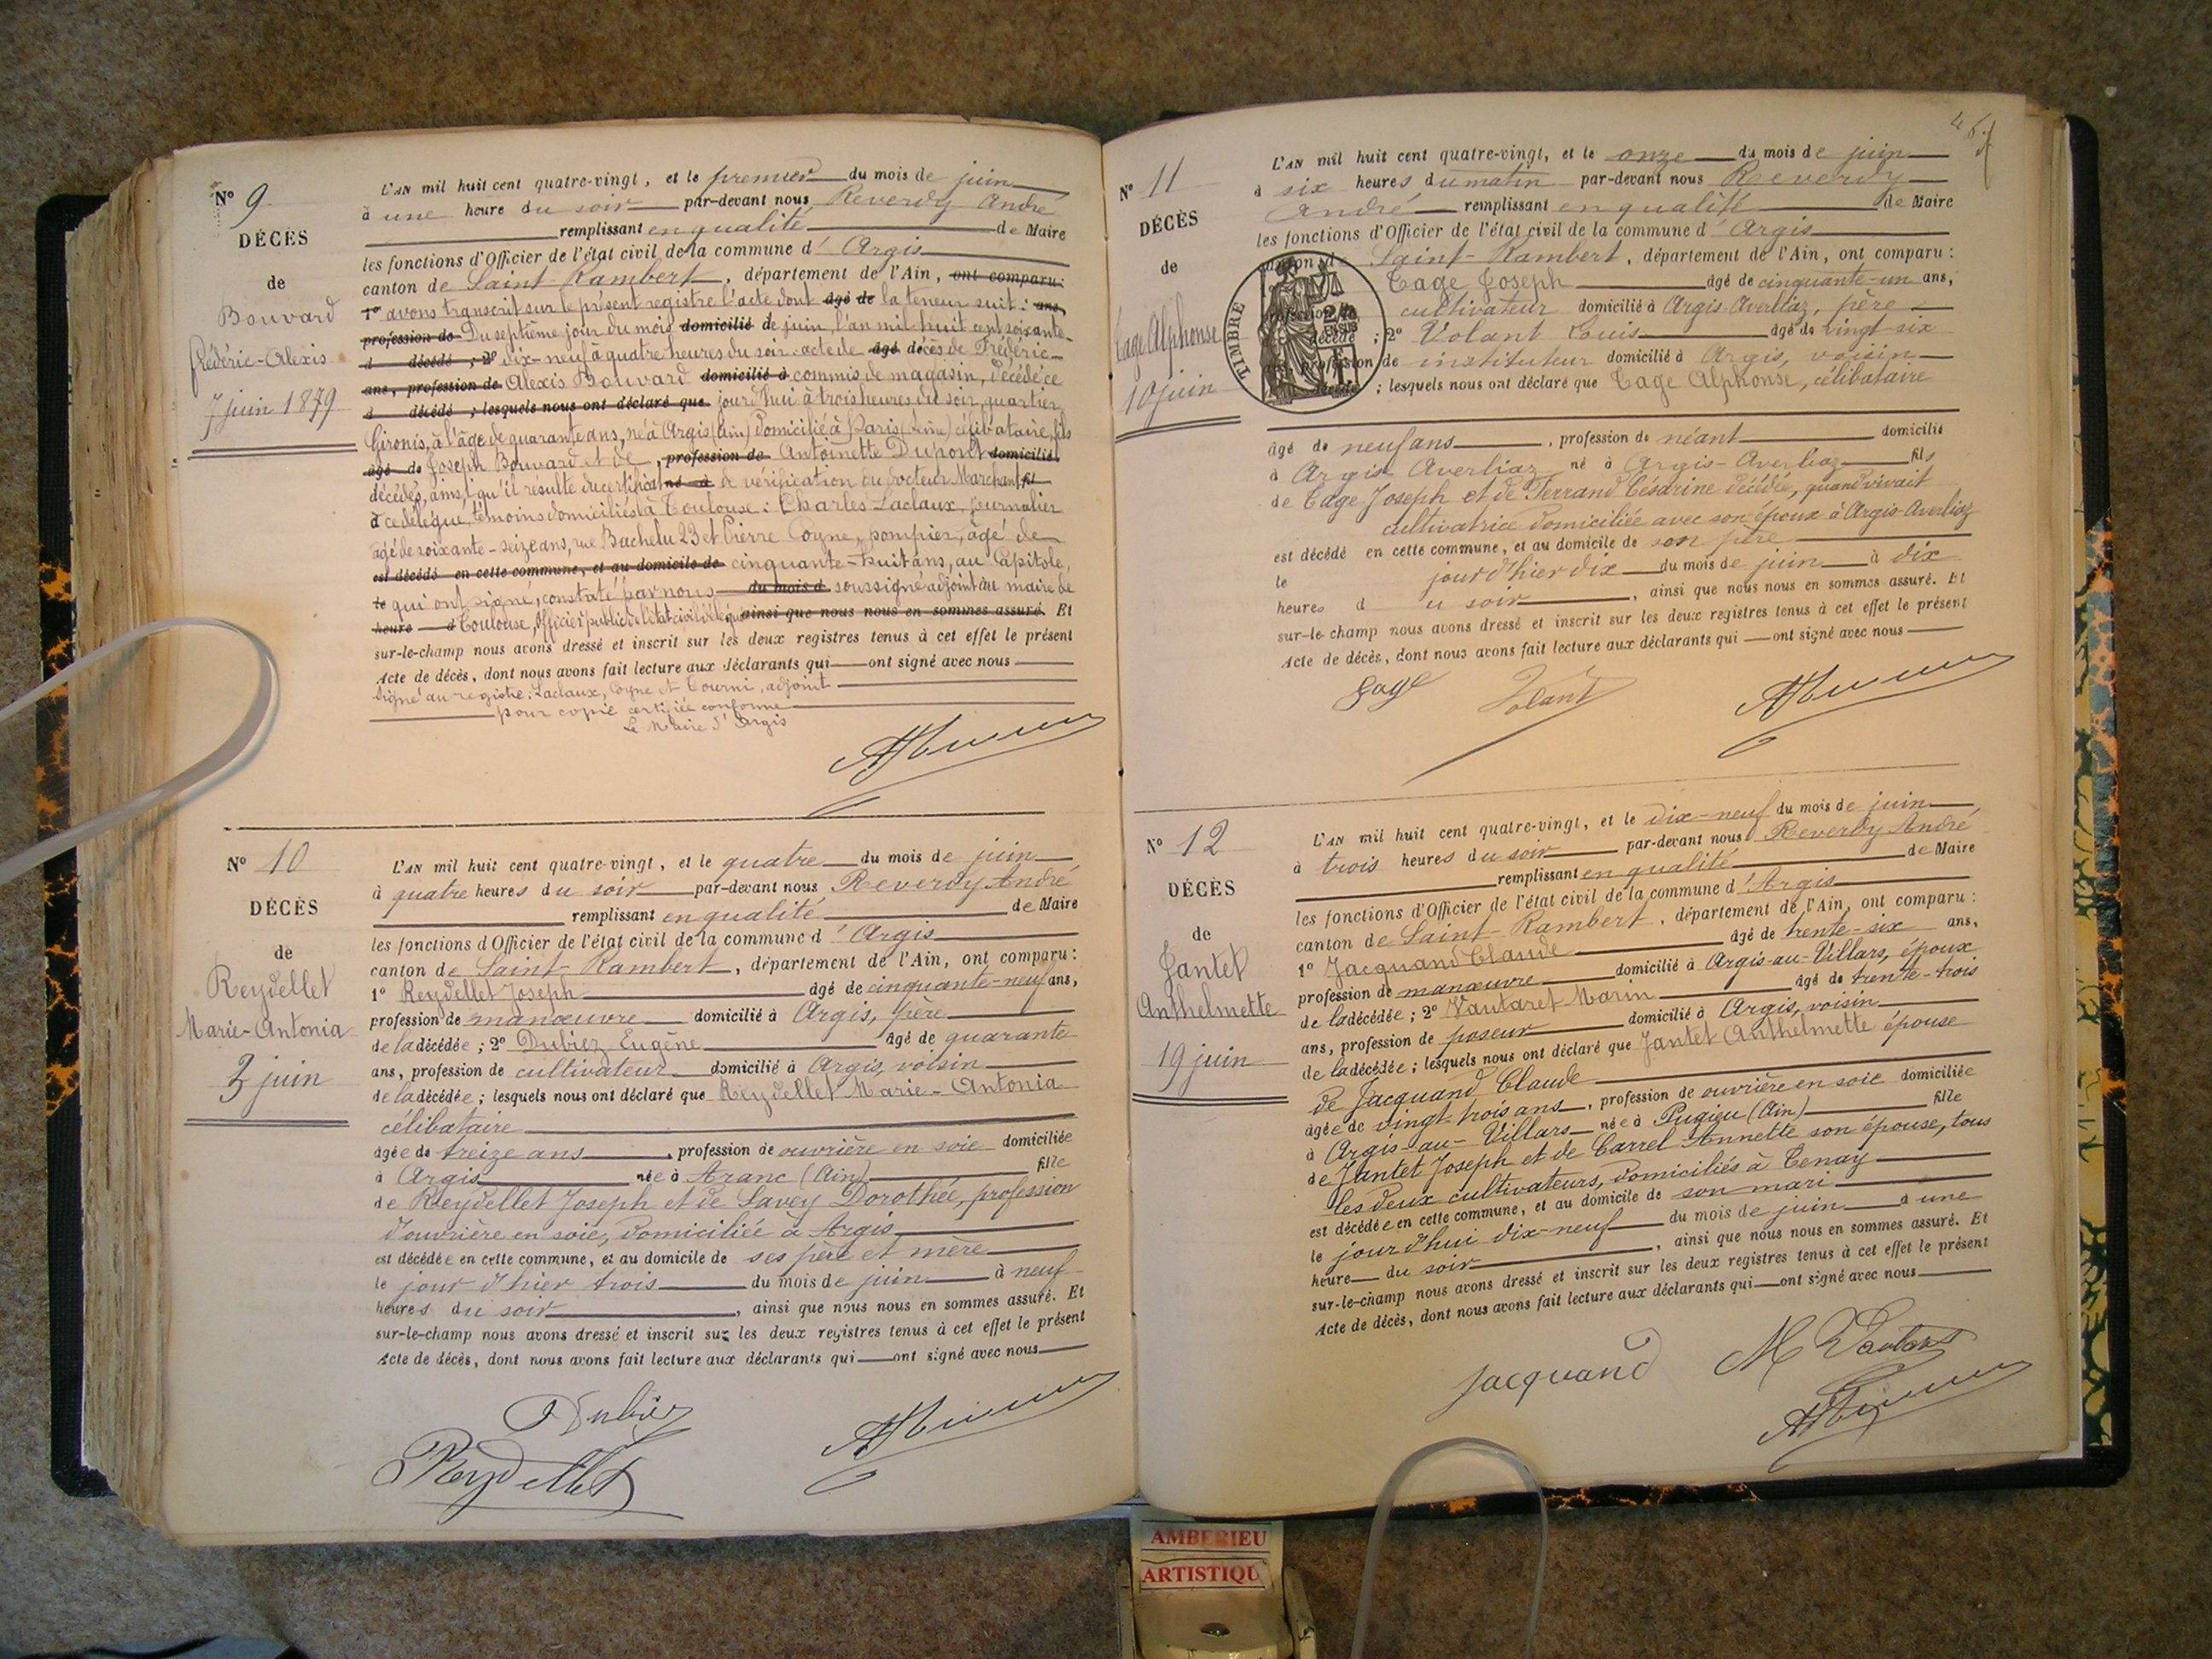 No 9
DÉCÈS
de
Bouvard
Frédéric-Alexis
7 juin 1879
L'AN mil huit cent quatre-vingt, et le premier du mois de juin
à une heure du soir par-devant nous Reverdy André
remplissant en qualité de Maire
les fonctions d'Officier de l'état civil de la commune d'Argis
canton de Saint-Rambert, département de l'Ain, ont comparu:
1o avons transcrit sur le présent registre l'acte dont âgé de la teneur suit: ans,
profession de Du septième jour du mois domicilié de juin, l'an mil huit cent soixante-
d décédé; 2o dix-neuf à quatre heures du soir acte de âgé décès de Frédéric-
ans, profession de Alexis Bouvard domicilié à commis de magasin, décédé ce
d décédé; lesquels nous ont déclaré que jourd'hui à trois heures du soir, quartier
Gironis, à l'âge de quarante ans, né à Argis (Ain) domicilié à Paris (Seine) célibataire, fils
âgé de Joseph Bouvard et de, profession de Antoinette Dupont domicilié
décédés, ainsi qu'il résulte du certificat né à de vérification du docteur Marchant fil
d ce délégué, témoins domiciliés à Toulouse: Charles Laclaux, journalier
âgé de soixante-seize ans, rue Bachelu 23 et Pierre Coyne, pompier, âgé de
est décédé en cette commune, et au domicile de cinquante-huit ans, au Capitole,
le qui ont signé, constaté par nous du mois d soussigné adjoint au maire de
heure d Toulouse, officier public de l'état civil délégué ainsi que nous nous en sommes assuré. Et
sur-le-champ nous avons dressé et inscrit sur les deux registres tenus à cet effet le présent
Acte de décès, dont nous avons fait lecture aux déclarants qui ont signé avec nous
Signé au registre: Laclaux, Coyne et Tourni, adjoint
pour copie certifiée conforme
Le Maire d'Argis
No 10
DÉCÈS
de
Reydellet
Marie-Antonia
3 juin
L'AN mil huit cent quatre-vingt, et le quatre du mois de juin
à quatre heures du soir par-devant nous Reverdy André
remplissant en qualité de Maire
les fonctions d'Officier de l'état civil de la commune d'Argis
canton de Saint-Rambert, département de l'Ain, ont comparu:
1o Reydellet Joseph âgé de cinquante-neuf ans,
profession de manœuvre domicilié à Argis, père
de la décédée; 2o Dubiez Eugène âgé de quarante
ans, profession de cultivateur domicilié à Argis, voisin
de la décédée; lesquels nous ont déclaré que Reydellet Marie-Antonia
célibataire
âgée de treize ans, profession de ouvrière en soie domiciliée
à Argis née à Aranc (Ain) fille
de Reydellet Joseph et de Savey Dorothée, profession
d'ouvrière en soie, domiciliée à Argis
est décédée en cette commune, et au domicile de ses père et mère
le jour d'hier trois du mois de juin à neuf
heures du soir, ainsi que nous nous en sommes assuré. Et
sur-le-champ nous avons dressé et inscrit sur les deux registres tenus à cet effet le présent
Acte de décès, dont nous avons fait lecture aux déclarants qui ont signé avec nous
Dubiez
Reydellet
No 11
DÉCÈS
de
Tage Alphonse
10 juin
L'AN mil huit cent quatre-vingt, et le onze du mois de juin
à six heures du matin par-devant nous Reverdy
André remplissant en qualité de Maire
les fonctions d'Officier de l'état civil de la commune d'Argis
canton d Saint-Rambert, département de l'Ain, ont comparu:
Tage Joseph âgé de cinquante-un ans,
profession cultivateur domicilié à Argis-Averliaz, père
décédé; 2o Volant Louis âgé de vingt-six
profession de instituteur domicilié à Argis, voisin
décédé; lesquels nous ont déclaré que Tage Alphonse, célibataire
TIMBRE
âgé de neuf ans, profession de néant domicilié
à Argis Averliaz né à Argis-Averliaz fils
de Tage Joseph et de Ferrand Césarine décédée, quand vivait
cultivatrice domiciliée avec son époux à Argis Averliaz
est décédé en cette commune, et au domicile de son père
le jour d'hier dix du mois de juin à dix
heures du soir, ainsi que nous nous en sommes assuré. Et
sur-le-champ nous avons dressé et inscrit sur les deux registres tenus à cet effet le présent
Acte de décès, dont nous avons fait lecture aux déclarants qui ont signé avec nous
Tage Volant
No 12
DÉCÈS
de
Jantet
Anthelmette
19 juin
L'AN mil huit cent quatre-vingt, et le dix-neuf du mois de juin,
à trois heures du soir par-devant nous Reverdy André
remplissant en qualité de Maire
les fonctions d'Officier de l'état civil de la commune d'Argis
canton de Saint-Rambert, département de l'Ain, ont comparu:
1o Jacquand Claude âgé de trente-six ans,
profession de manœuvre domicilié à Argis-au-Villars, époux
de la décédée; 2o Vautaret Marin âgé de trente-trois
ans, profession de poseur domicilié à Argis, voisin
de la décédée; lesquels nous ont déclaré que Jantet Anthelmette épouse
de Jacquand Claude
âgée de vingt-trois ans, profession de ouvrière en soie domiciliée
à Argis-au-Villars née à Pugieu (Ain) fille
de Jantet Joseph et de Carrel Annette son épouse, tous
les deux cultivateurs, domiciliés à Tenay
est décédée en cette commune, et au domicile de son mari
le jour d'hui dix-neuf du mois de juin à une
heure du soir, ainsi que nous nous en sommes assuré. Et
sur-le-champ nous avons dressé et inscrit sur les deux registres tenus à cet effet le présent
Acte de décès, dont nous avons fait lecture aux déclarants qui ont signé avec nous
Jacquand M Vautaret
AMBERIEU
ARTISTIQU